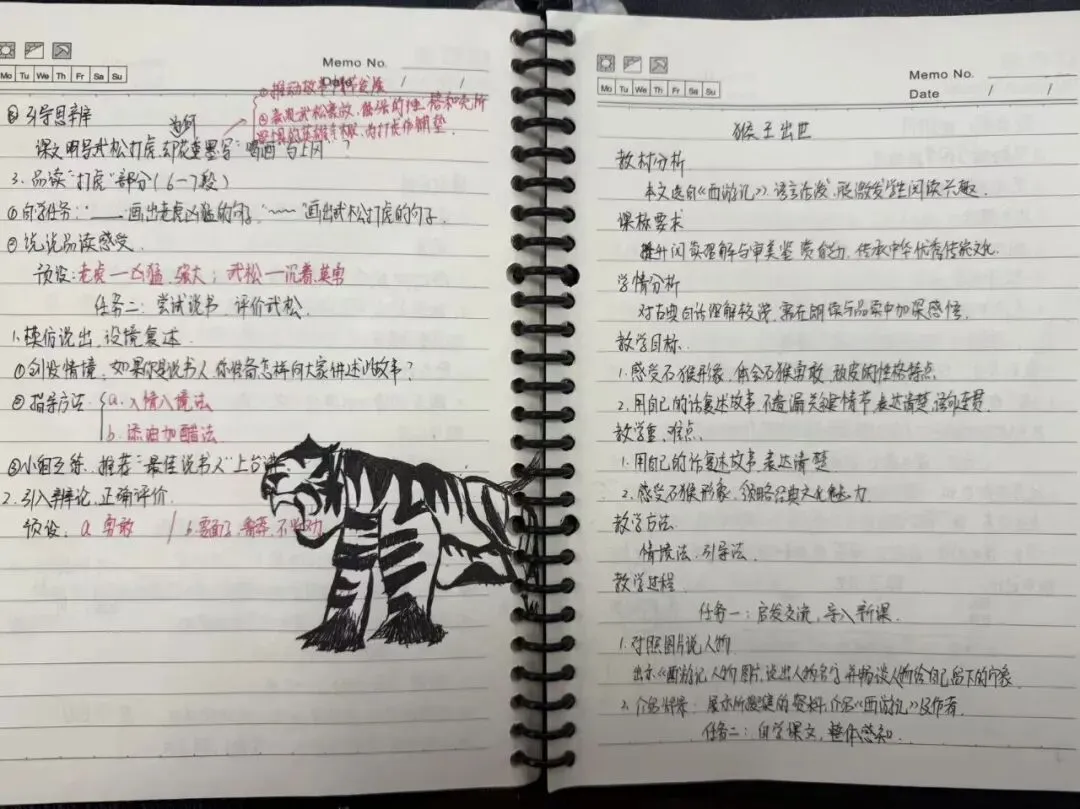 Memo No.
Mo Tu We Th Fr Sa Su
Date / /
①推动故事情节发展
②表现武松豪放、倔强的性格和无所
畏惧的英雄气概,为打虎作铺垫.
② 引导思辨
为何
课文明写武松打虎,却花重墨写“喝酒”与“上冈”?
3. 品读“打虎”部分(6-7段)
①自学任务:“——”画出老虎凶猛的句子,“~~~”画出武松打虎的句子.
②说说品读感受.
预设:老虎—凶猛、强大;武松—沉着、英勇
任务二:尝试说书,评价武松.
1.模仿说出,设境复述.
①创设情境,如果你是说书人,你准备怎样向大家讲述此故事?
②指导方法 a.入情入境法
b.添油加醋法
③小组互练,推荐“最佳说书人”上台讲
2.引入辩论,正确评价.
预设:a.勇敢 / b.要面子、鲁莽、不
Memo No.
Mo Tu We Th Fr Sa Su
Date / /
猴王出世
教材分析
本文选自《西游记》,语言活泼,能激发学生阅读兴趣.
课标要求
提升阅读理解与审美鉴赏能力,传承中华优秀传统文化.
学情分析
对古典白话理解较浅,需在朗读与品味中加深感悟.
教学目标.
1.感受石猴形象,体会石猴勇敢、顽皮的性格特点
2.用自己的话复述故事,不遗漏关键情节,表达清楚,语句连贯.
教学重、难点.
1.用自己的话复述故事,表达清楚
2.感受石猴形象,领略经典文化魅力.
教学方法
情境法、引导法.
教学过程
任务一:启发交流,导入新课.
1.对照图片说人物
出示《西游记》人物图片,说出人物名字,并畅谈人物给自己留下的印象.
2.介绍背景:展示所搜集的资料,介绍《西游记》及作者.
任务二:自学课文,整体感知.